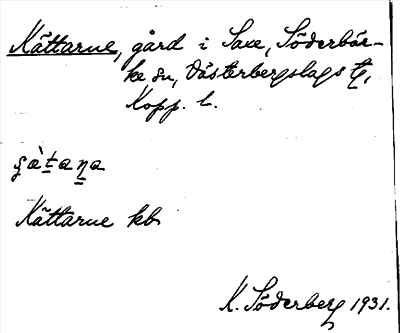 Kättarne, gård i Saxe, Söderbär-
ke sn, Västerbergslags tg,
Kopp. l.
Kättarne kb
K. Söderberg 1931.